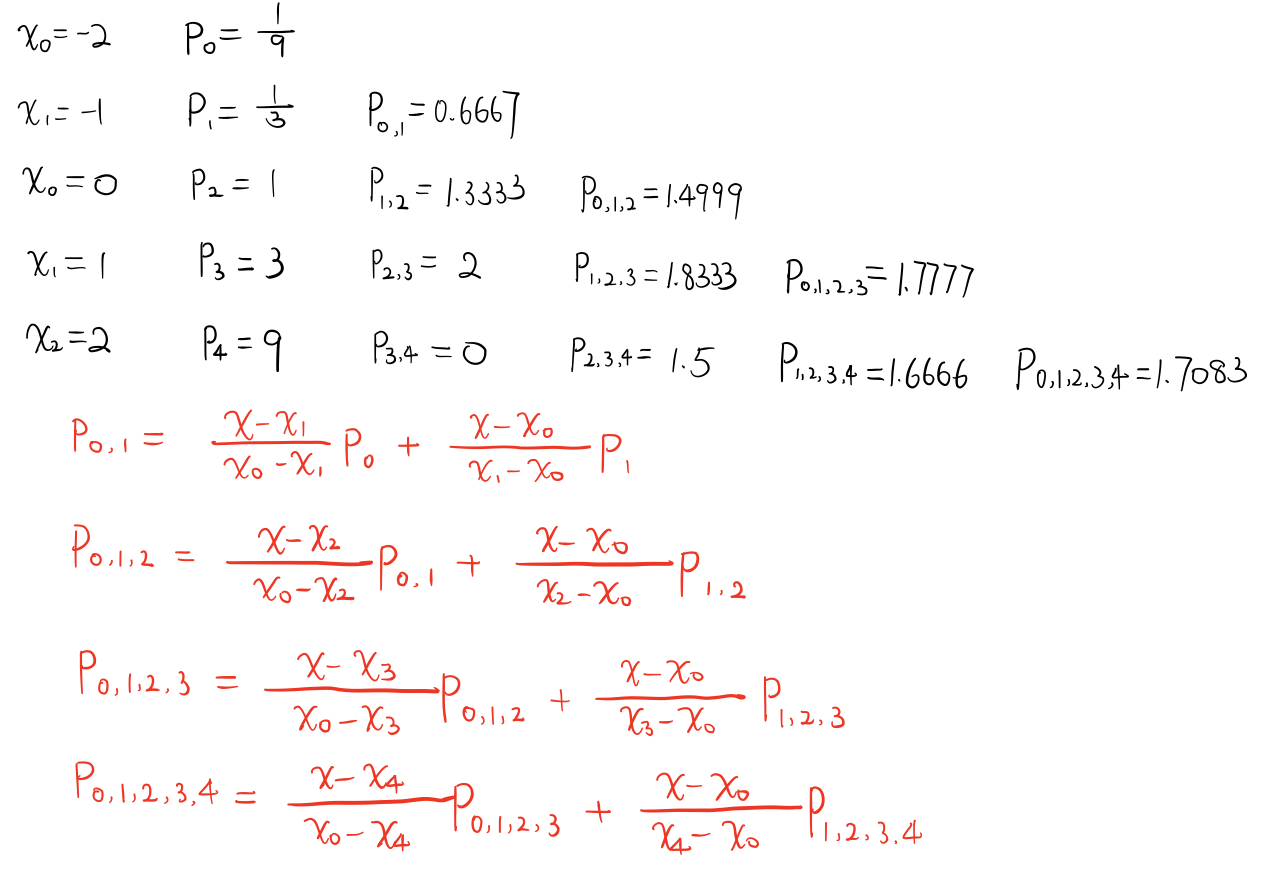 x₀=-2 P₀= 1/9
x₁=-1 P₁= 1/3 P₀,₁=0.6667
x₀=0 P₂=1 P₁,₂=1.3333 P₀,₁,₂=1.4999
x₁=1 P₃=3 P₂,₃=2 P₁,₂,₃=1.8333 P₀,₁,₂,₃=1.7777
x₂=2 P₄=9 P₃,₄=0 P₂,₃,₄=1.5 P₁,₂,₃,₄=1.6666 P₀,₁,₂,₃,₄=1.7083
P₀,₁ = (x-x₁)/(x₀-x₁) P₀ + (x-x₀)/(x₁-x₀) P₁
P₀,₁,₂ = (x-x₂)/(x₀-x₂) P₀,₁ + (x-x₀)/(x₂-x₀) P₁,₂
P₀,₁,₂,₃ = (x-x₃)/(x₀-x₃) P₀,₁,₂ + (x-x₀)/(x₃-x₀) P₁,₂,₃
P₀,₁,₂,₃,₄ = (x-x₄)/(x₀-x₄) P₀,₁,₂,₃ + (x-x₀)/(x₄-x₀) P₁,₂,₃,₄